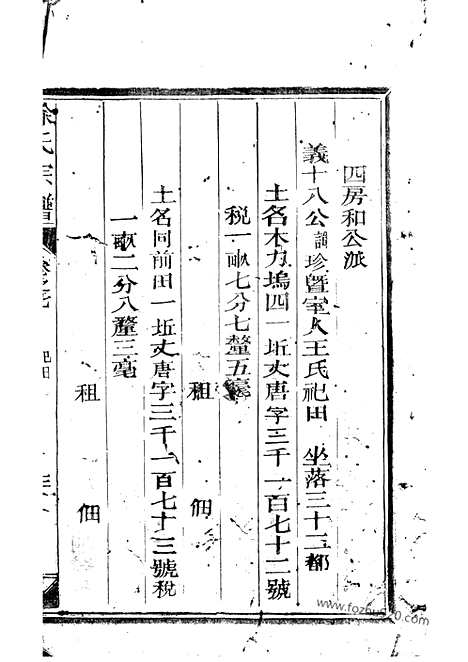 四房和公派
義十八公諱珍暨室人王氏祀田 坐落三十三都
土名木力塢四一坵丈唐字三千一百七十二號
稅一畝七分七釐五毫
租 佃
土名同前田一坵丈唐字三千一百七十三號稅
一畝二分八釐三毫
租 佃
徐氏宗譜 卷之 祀田
www.fozhu920.com